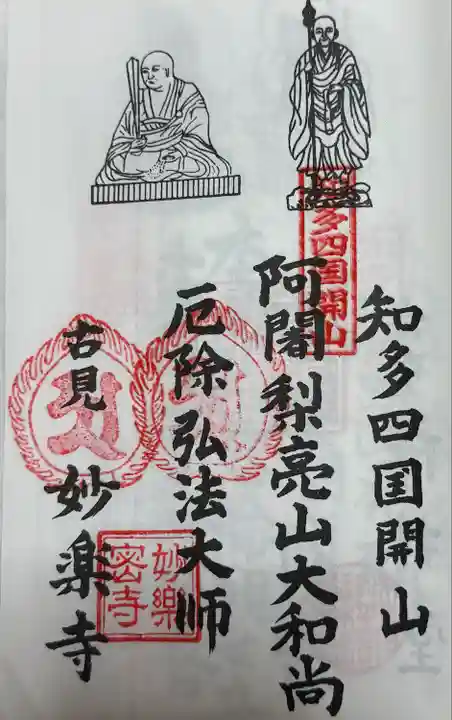 知多四国開山
知多四国開山
阿闍梨亮山大和尚
厄除弘法大師
古見 妙楽寺
妙樂
密寺